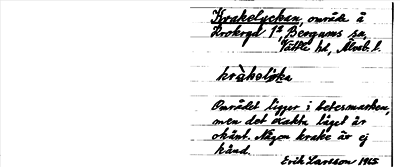 Krakelyckan, område å
Krokryd 1², Bergums sn,
Vättle hd, Älvsb. l.
kràkelỳka
Området ligger i betesmarken,
men det exakta läget är
okänt. Någon krake är ej
känd.
Erik Larsson 1965